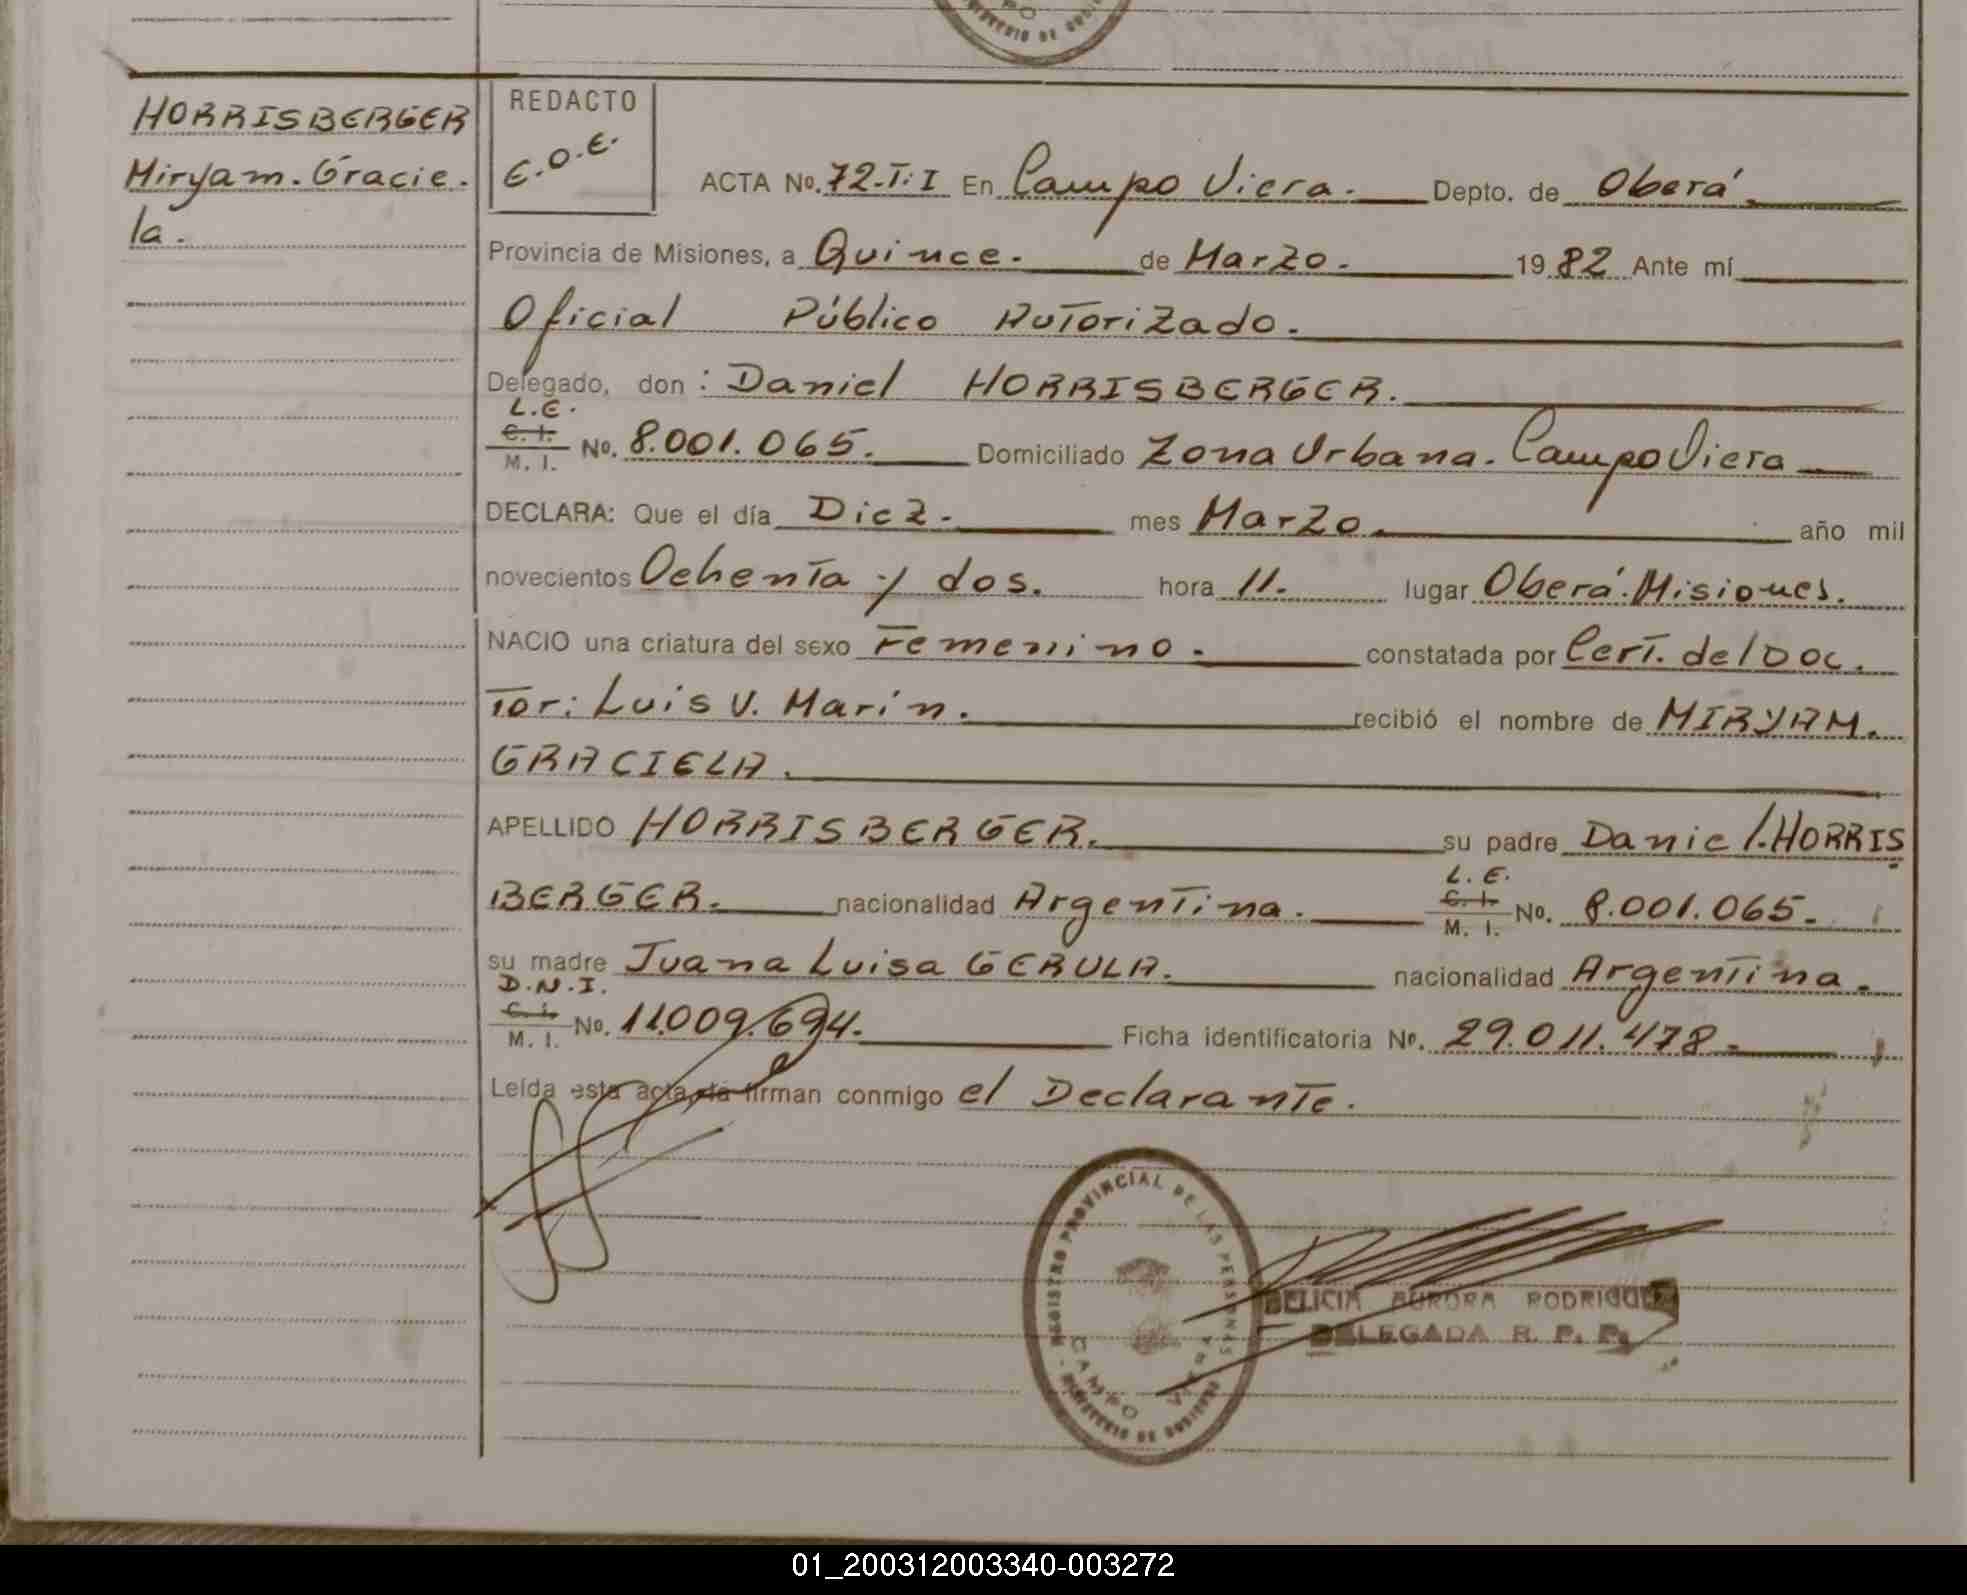 PO
MINISTERIO DE GOBIERNO
HORRISBERGER
Miryam. Gracie.
la.
REDACTO
E.O.E.
ACTA No. 72-T:I En Campo Viera. Depto. de Oberá
Provincia de Misiones, a Quince. de Marzo. 1982 Ante mí
Oficial Público Autorizado.
Delegado, don: Daniel HORRISBERGER.
L.E.
C. I.
M. I. No. 8.001.065. Domiciliado Zona Urbana. Campo Viera
DECLARA: Que el día Diez. mes Marzo. año mil
novecientos Ochenta y dos. hora 11. lugar Oberá. Misiones.
NACIO una criatura del sexo Femenino. constatada por Cert. del Doc.
tor: Luis V. Marín. recibió el nombre de MIRYAM.
GRACIELA.
APELLIDO HORRISBERGER. su padre Daniel. HORRIS
BERGER. nacionalidad Argentina. L. E. C. I. M. I. No. 8.001.065.
su madre Juana Luisa GERULA. nacionalidad Argentina.
D.N.I.
C. I.
M. I. No. 11.009.694. Ficha identificatoria No. 29.011.478.
Leída esta acta la firman conmigo el Declarante.
REGISTRO PROVINCIAL DE LAS PERSONAS
CAMPO VIERA
MINISTERIO DE GOBIERNO
DELICIA AURORA RODRIGUEZ
DELEGADA R. P. P.
01_200312003340-003272